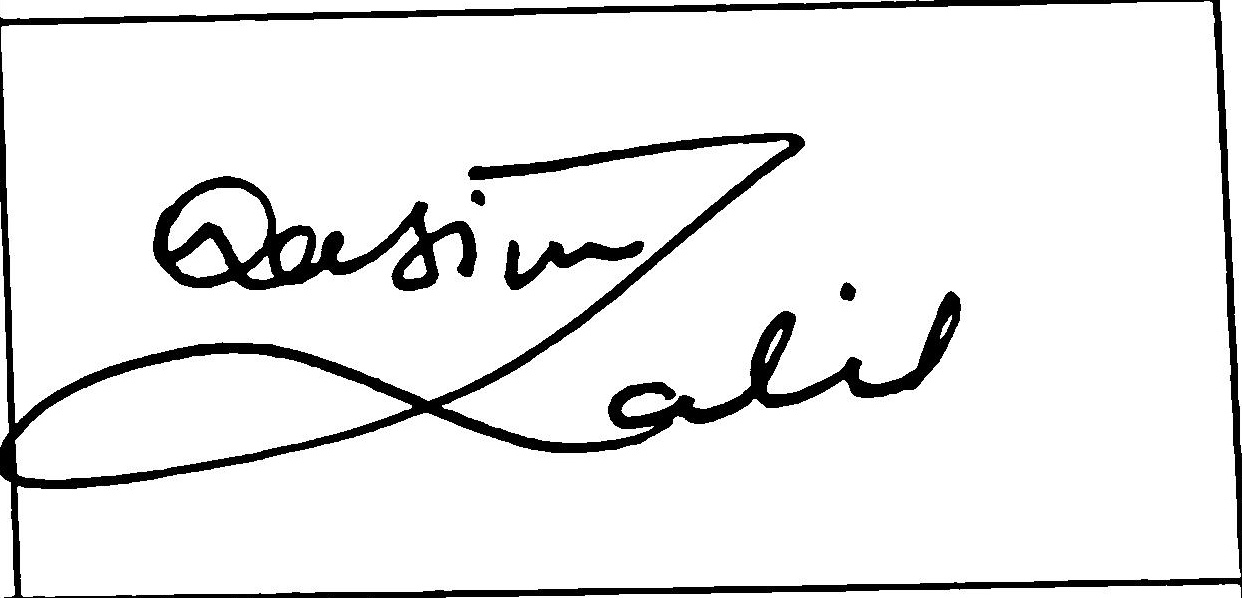 Qasim
Zalil